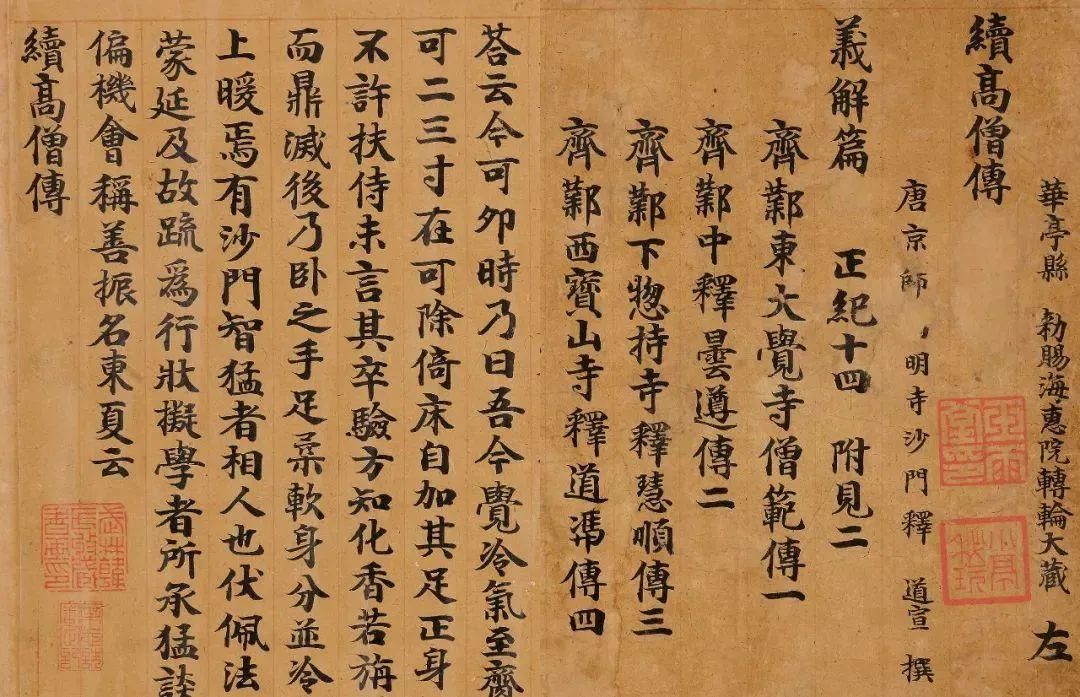 華亭縣 勑賜海惠院轉輪大藏 左
續髙僧傳
唐京師 明寺沙門釋 道宣 撰
義解篇 正紀十四 附見二
齊鄴東大覺寺僧範傳一
齊鄴中釋曇遵傳二
齊鄴下惣持寺釋慧順傳三
齊鄴西寶山寺釋道馮傳四
荅云今可卯時乃曰吾今覺冷氣至齊
可二三寸在可除倚床自加其足正身
不許扶侍未言其卒驗方知化香若旃
而鼎滅後乃卧之手足柔軟身分並冷
上暖焉有沙門智猛者相人也伏佩法
蒙延及故䟽爲行狀擬學者所承猛談
偏機會稱善振名東夏云
續髙僧傳